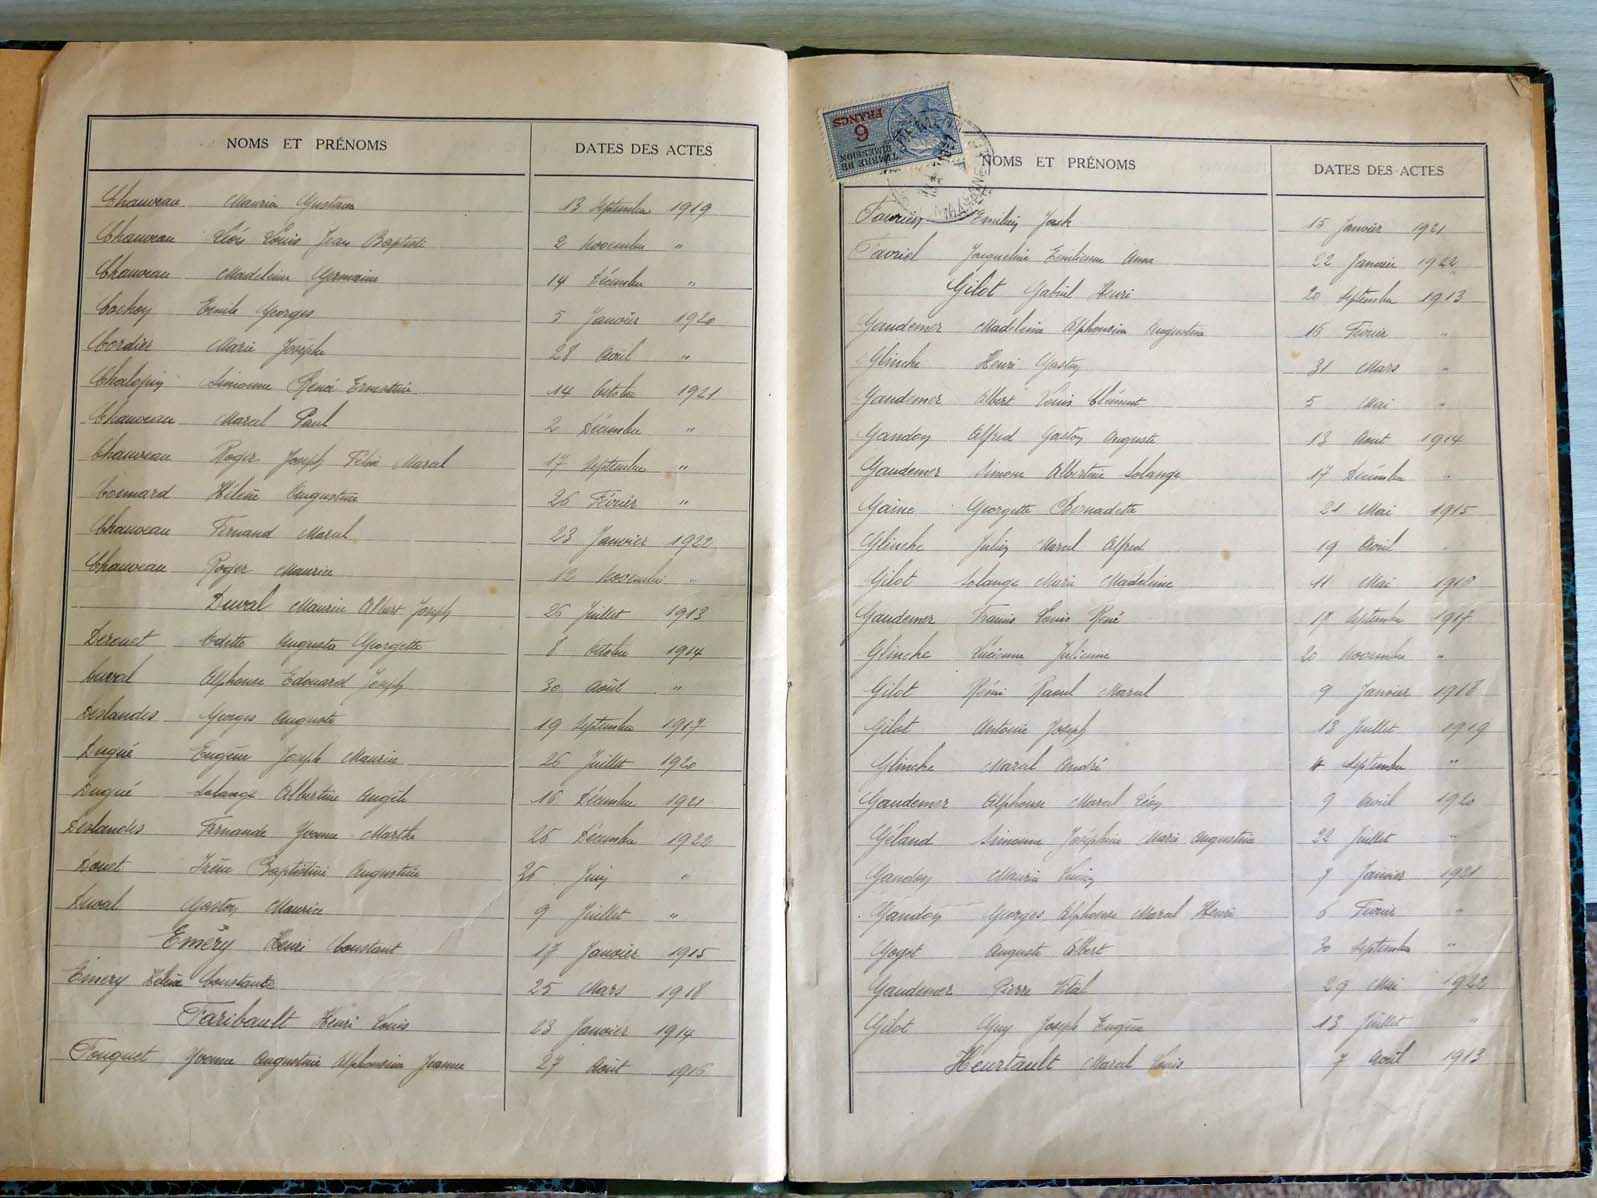 NOMS ET PRÉNOMS DATES DES ACTES
Chauveau Maurice Gustave 13 Septembre 1919
Chauveau Léon Louis Jean Baptiste 2 Novembre "
Chauveau Madeleine Germaine 14 Décembre "
Cochon Emile Georges 5 Janvier 1920
Cordier Marie Josèphe 28 Avril "
Chalopin Simonne Renée Ernestine 14 Octobre 1921
Chauveau Marcel Paul 2 Décembre "
Chauveau Roger Joseph Félix Marcel 17 Septembre "
Cosnard Hélène Augustine 26 Février "
Chauveau Fernand Marcel 23 Janvier 1922
Chauveau Roger Maurice 12 Novembre "
Duval Maurice Albert Joseph 26 Juillet 1913
Derouet Odette Augusta Georgette 8 Octobre 1914
Duval Alphonse Edouard Joseph 30 Août "
Deslandes Georges Auguste 19 Septembre 1917
Dugué Eugène Joseph Maurice 26 Juillet 1920
Dugué Solange Albertine Angèle 16 Décembre 1921
Deslandes Fernande Yvonne Marthe 26 Décembre 1922
Douet Irène Baptistine Augustine 26 Juin "
Duval Gaston Maurice 9 Juillet "
Eméry Henri Constant 17 Janvier 1915
Émery Hélène Constante 25 Mars 1918
Faribault Henri Louis 23 Janvier 1914
Fouquet Yvonne Augustine Alphonsine Jeanne 27 Août 1916
6
FRANCS
TIMBRE DE
DIMENSION
NOMS ET PRÉNOMS DATES DES ACTES
Emilien 15 Janvier 1921
Favriel Jacqueline Emilienne Anne 22 Janvier 1922
Gilot Gabriel Henri 20 Septembre 1913
Gaudemer Madeleine Alphonsine Augustine 15 Février "
Glinche Henri Gaston 31 Mars "
Gaudemer Albert Louis Clément 5 Mai "
Gandon Alfred Gaston Auguste 13 Aout 1914
Gaudemer Simone Albertine Solange 17 Décembre "
Gaine Georgette Bernadette 21 Mai 1915
Glinche Julien Marcel Alfred 19 Avril "
Gilot Solange Marie Madeleine 11 Mai
Gaudemer Francis Louis René 17 Septembre 1917
Glinche Lucienne Julienne 20 Novembre "
Gilot Rémi Raoul Marcel 9 Janvier 1918
Gilot Antoine Joseph 13 Juillet 1919
Glinche Marcel André 4 Septembre "
Gaudemer Alphonse Marcel Léon 9 Avril 1920
Géland Simonne Joséphine Marie Augustine 22 Juillet "
Gandon Maurice Lucien 7 Janvier 1921
Gandon Georges Alphonse Marcel Henri 6 Février "
Goyet Auguste Albert 30 Septembre "
Gaudemer Pierre Vital 29 Mai 1922
Gilot Guy Joseph Eugène 13 Juillet "
Heurtault Marcel Louis 7 Août 1913